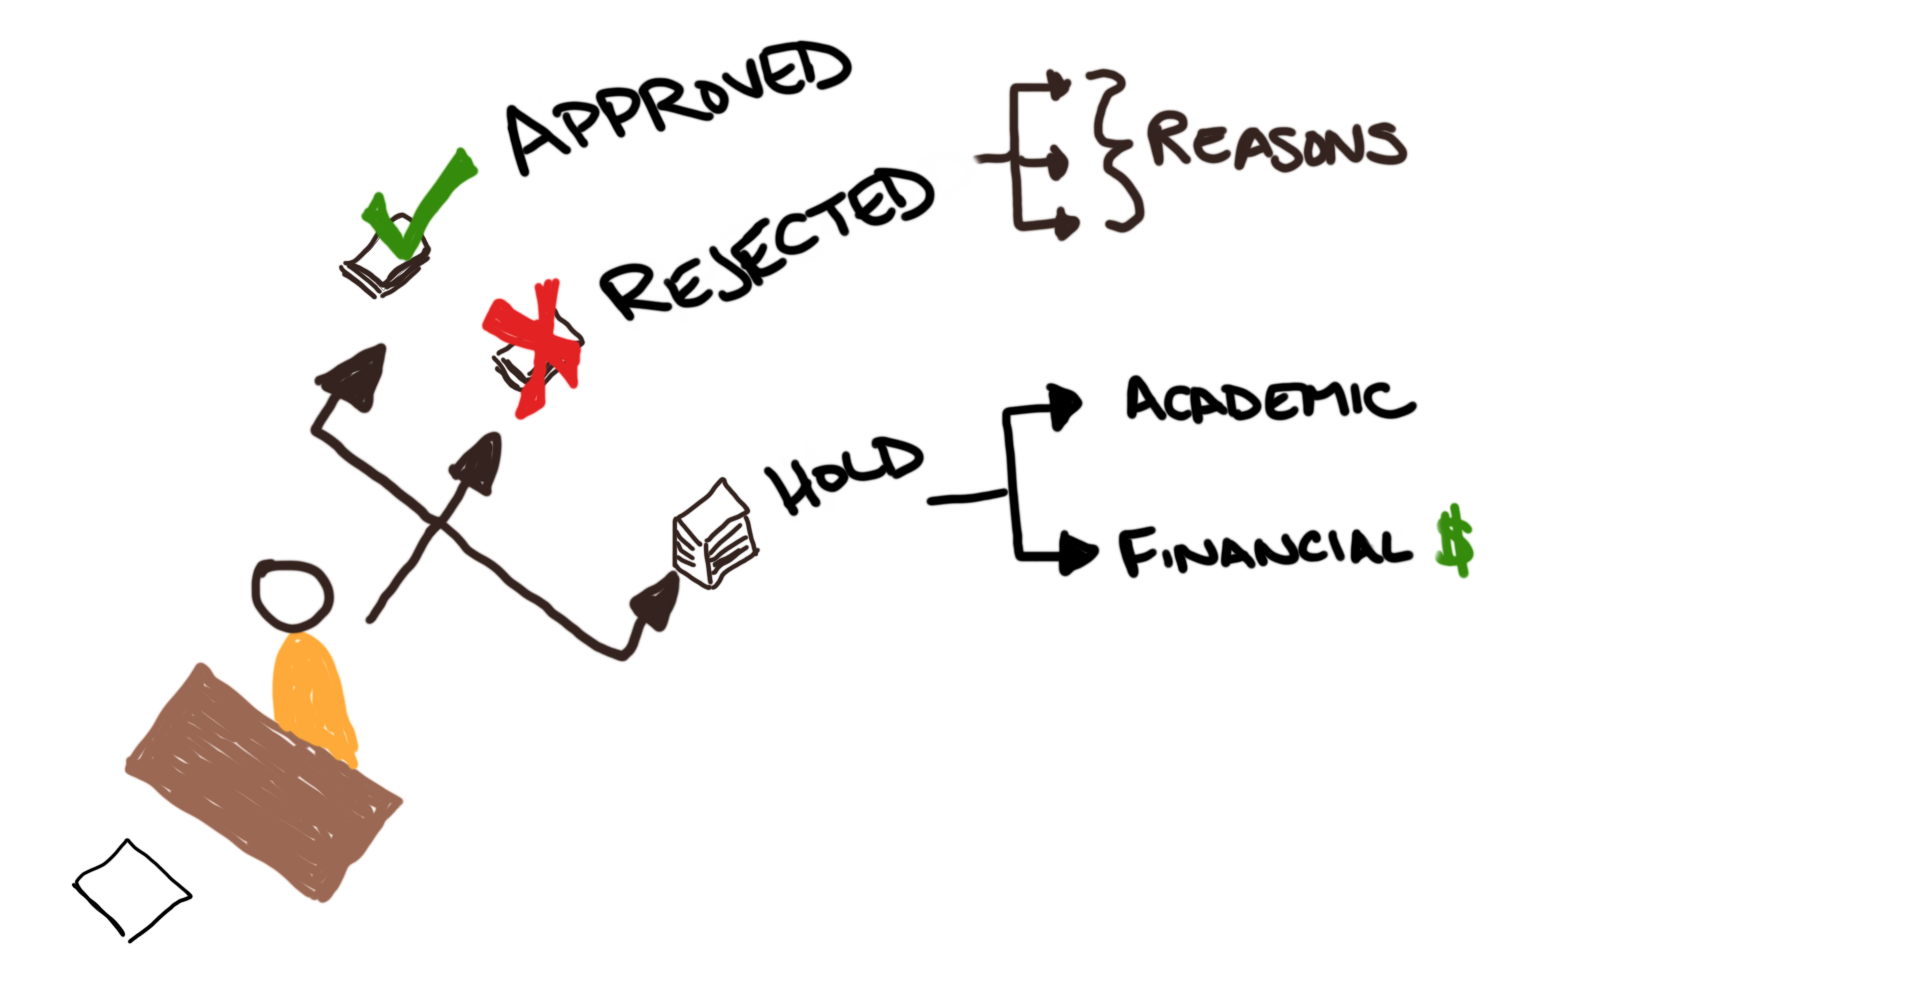 APPROVED
REJECTED
REASONS
HOLD
ACADEMIC
FINANCIAL $